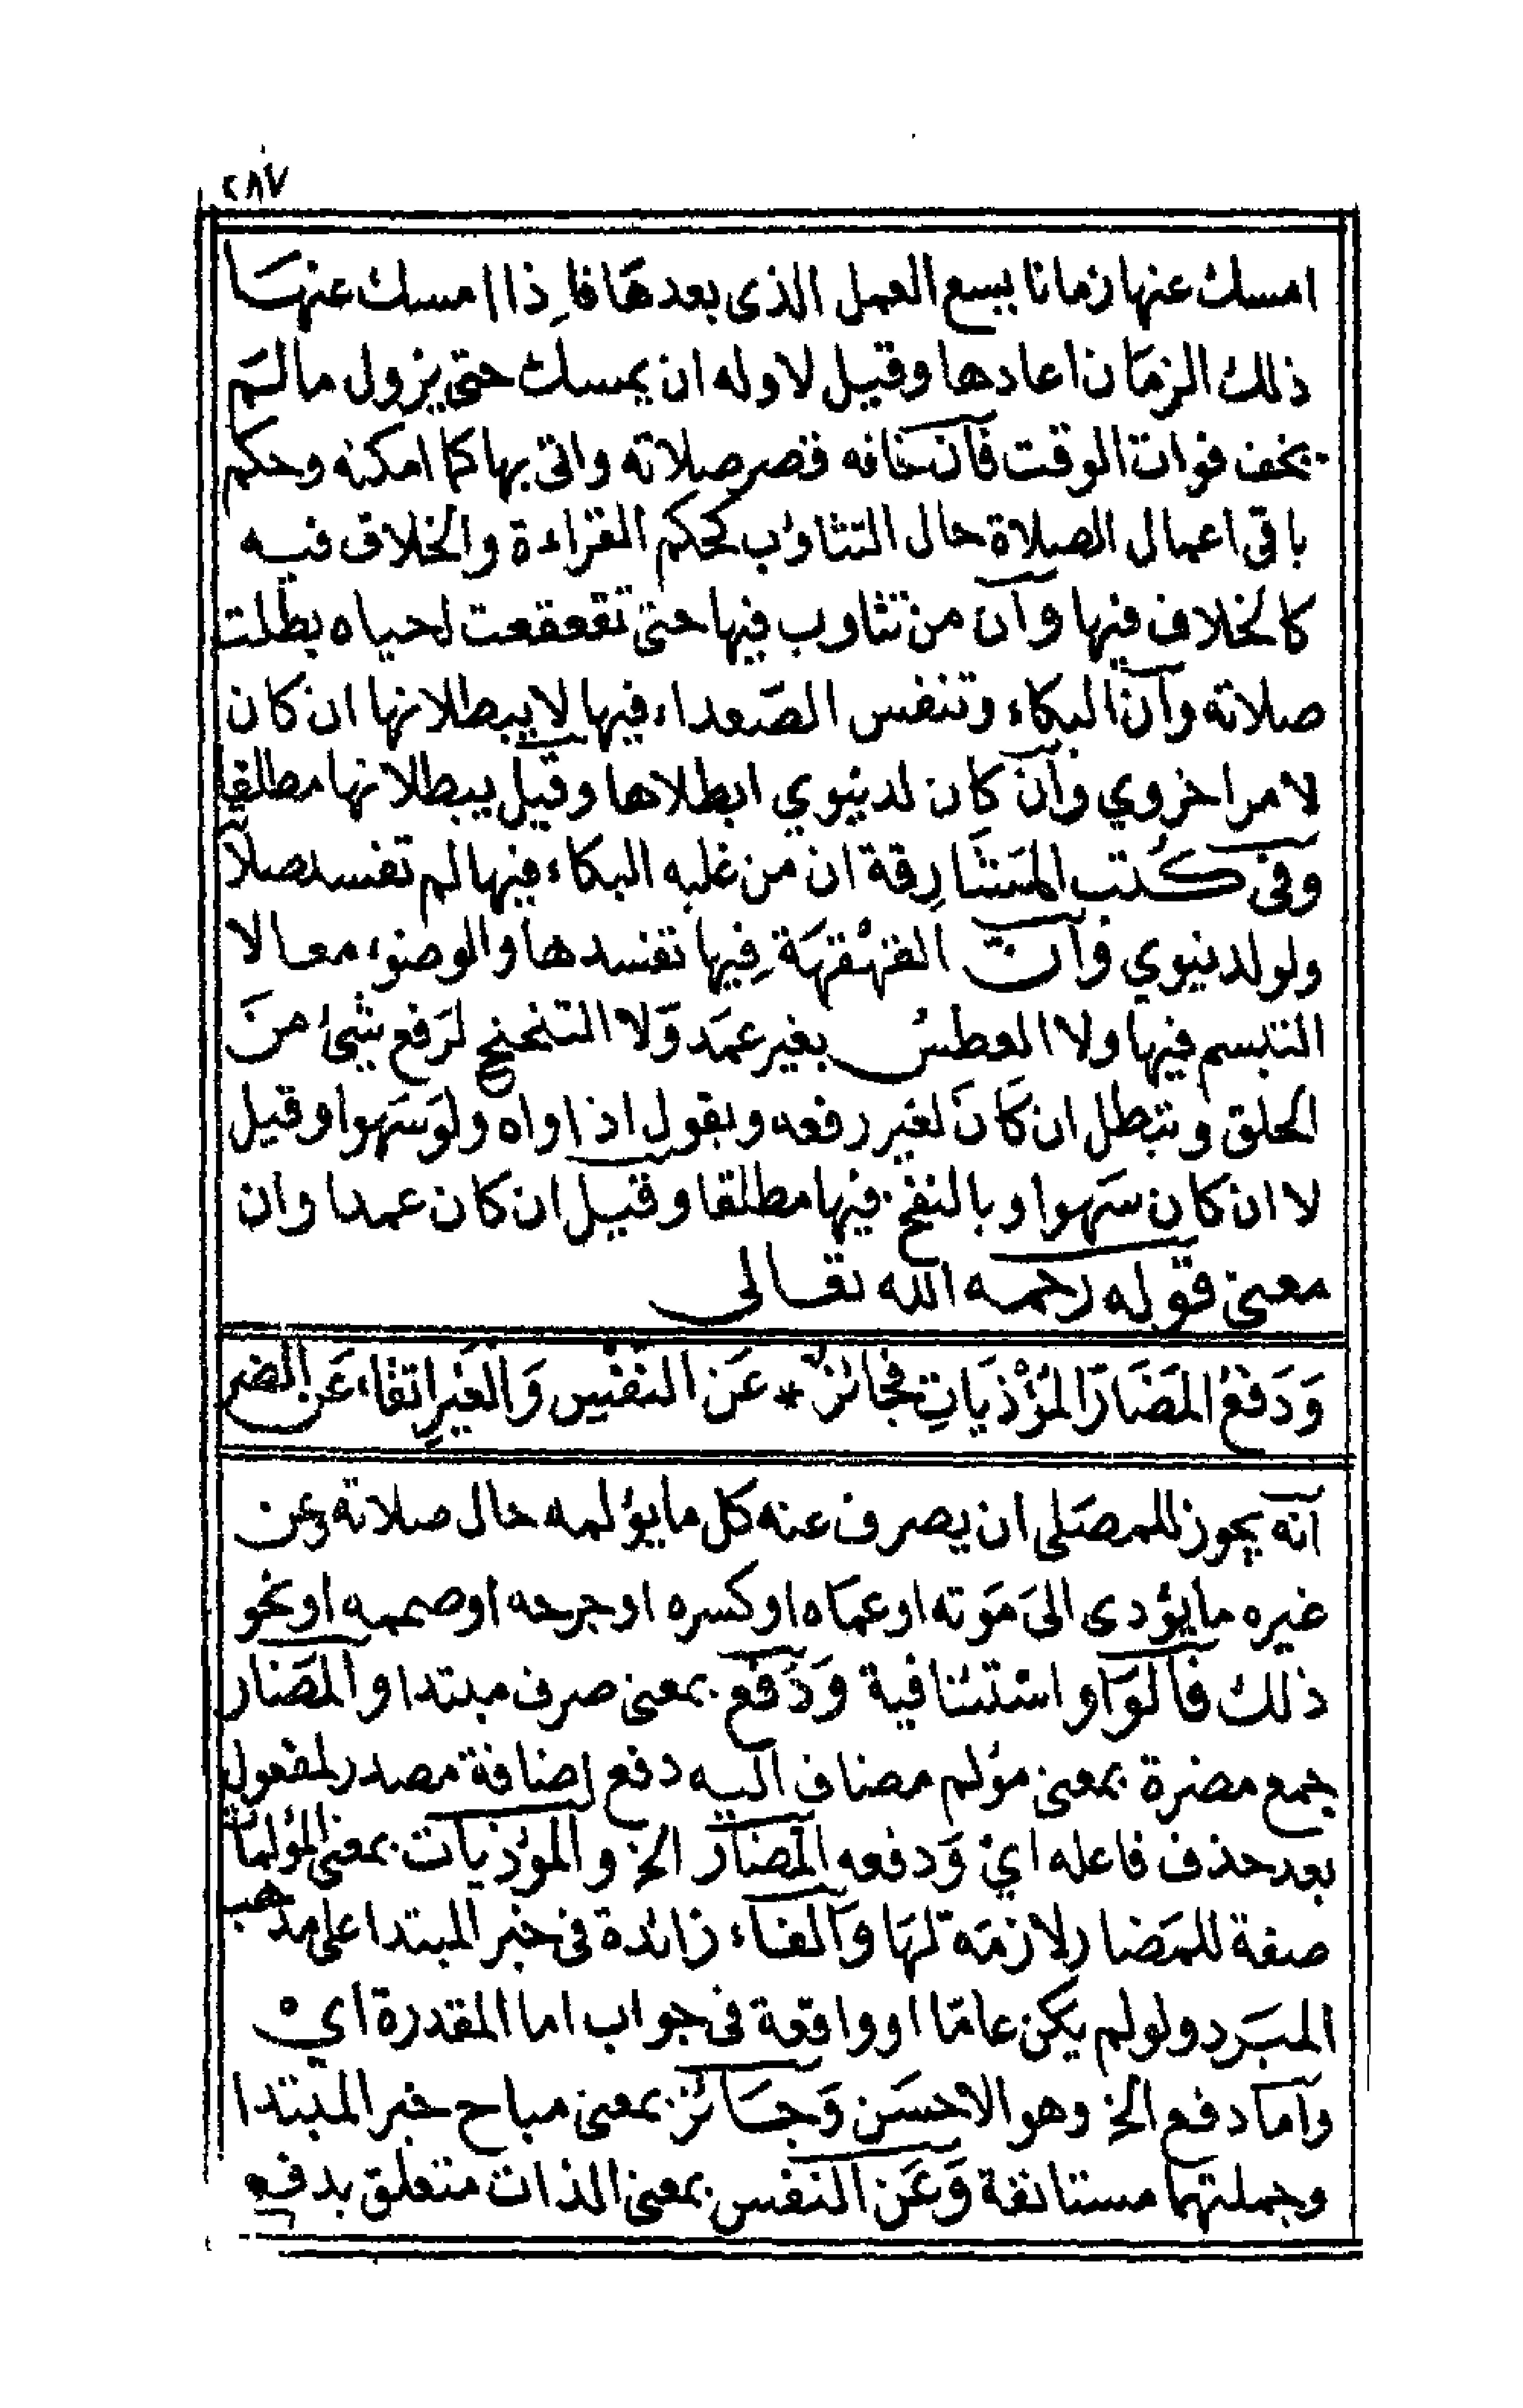 ٢٨٧
امسك عنها زمانا يسع العمل الذى بعدها فإذا امسك عنها
ذلك الزمان اعادها وقيل لا وله ان يمسك حتى يزول ما لم
يخف فوات الوقت فان خافه قصر صلاته واتى بها كما امكنه وحكم
باقى اعمال الصلاة حال التثاوب كحكم القراءة والخلاف فيه
كالخلاف فيها وان من تثاوب فيها حتى تقعقعت لحياه بطلت
صلاته وان البكاء وتنفس الصّعداء فيها لا يبطلانها ان كان
لامر اخروي وان كان لدنيوي ابطلاها وقيل يبطلانها مطلقا
وفى كُتب المشَارِقة ان من غلبه البكاء فيها لم تفسد صلاته
ولو لدنيوي وانّ القهْقهَة فِيها تفسدها والوضوء معا لا
التبسم فيها ولا العطسُ بغير عمَد وَلا التنحنح لرَفع شئ منَ
الحلق وتبطل ان كَانَ لغير رفعه وبقول اذا واه ولوَ سَهوا وقيل
لا ان كان سَهوا وبالنفخ فيها مطلقا وقيل ان كان عمدا وان
معنى قوله رحمه الله تعالى
وَدَفْعُ المَضَارّ المُؤْذيَاتِ فجَائزٌ * عَن النفْسِ وَالغَيْرِ اتقاءً عَن الضر
انه يجوز للمصَلى ان يصرف عنه كل ما يؤلمه حال صلاته وعن
غيره ما يؤدى الىَ مَوته او عماه او كسره او جرحه او صممه او نحو
ذلك فالوَاو اسْتئنافية وَدَفع بمعنى صرف مبتدا والمضَار
جمع مضرة بمعنى مؤلم مضاف اليه دفع اضافة مصدر لمفعول
بعد حذف فاعله ايْ وَدفعه المضَارّ الخ والمؤذيَات بمعنى المؤلمات
صفة للمَضار لازمَة لهَا وَالفاء زائدة فى خبر المبتدا على مذهب
المبَرد ولو لم يكن عامّا او واقعة فى جواب اما المقدرة ايْ
واما دفع الخ وهو الاحسَن وَجَائز بمعنى مباح خبر المبتدا
وجملتهما مستانفة وَعَن النفس بمعنى الذات متعلق بدفع